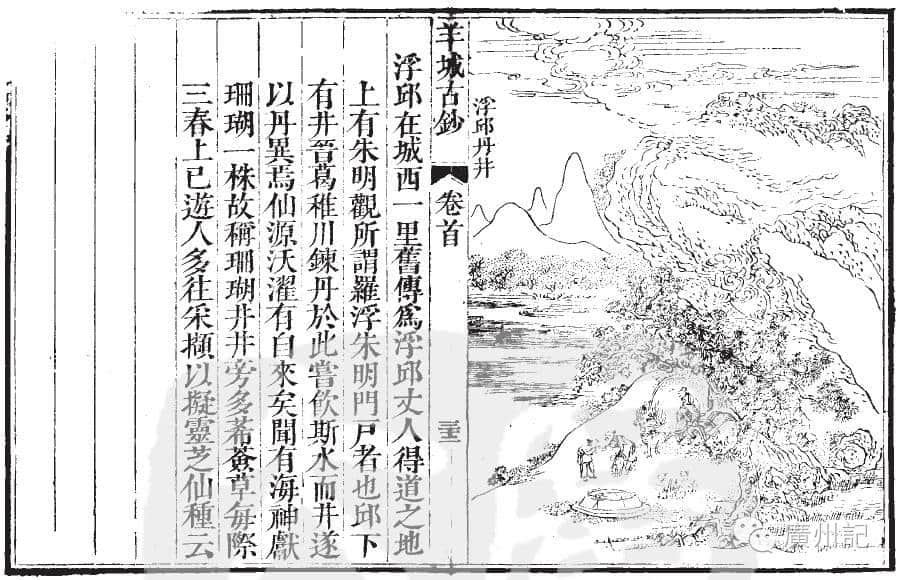 浮邱丹井
羊城古鈔 卷首
浮邱在城西一里舊傳爲浮邱丈人得道之地
上有朱明觀所謂羅浮朱明門戸者也邱下
有井晉葛稚川鍊丹於此嘗飲斯水而井遂
以丹異焉仙源沃濯有自來矣聞有海神獻
珊瑚一株故稱珊瑚井井旁多莃薟草每際
三春上巳遊人多往采擷以擬靈芝仙種云
廣州記